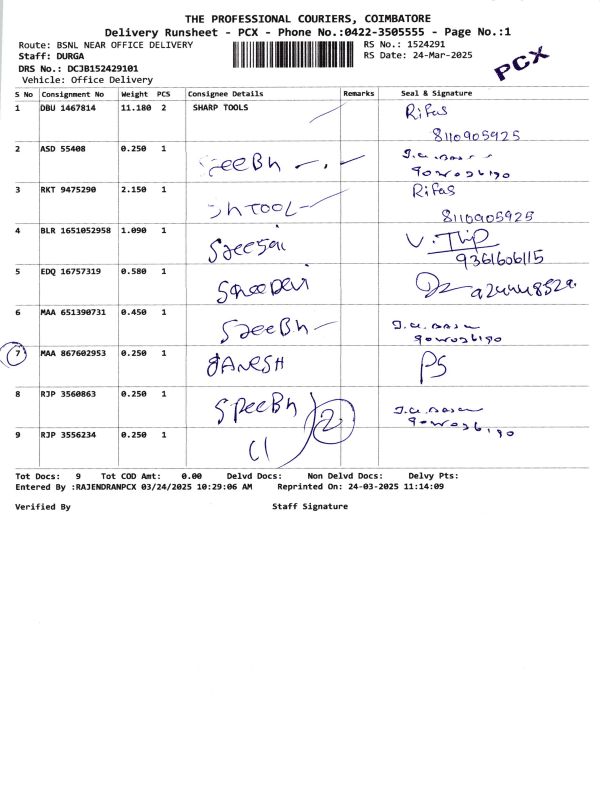 THE PROFESSIONAL COURIERS, COIMBATORE
Delivery Runsheet - PCX - Phone No.:0422-3505555 - Page No.:1
Route: BSNL NEAR OFFICE DELIVERY RS No.: 1524291
Staff: DURGA RS Date: 24-Mar-2025
PCX
DRS No.: DCJB152429101
Vehicle: Office Delivery
S No Consignment No Weight PCS Consignee Details Remarks Seal & Signature
1 DBU 1467814 11.180 2 SHARP TOOLS Rifas
8110905925
2 ASD 55408 0.250 1 SreeBh
3 RKT 9475290 2.150 1 ShTOOL Rifas
8110905925
4 BLR 1651052958 1.090 1 Sreesai
9361606115
5 EDQ 16757319 0.580 1 SreeDevi
6 MAA 651390731 0.450 1 SreeBh
7 MAA 867602953 0.250 1 GANESH PS
8 RJP 3560863 0.250 1 SreeBh
2
9 RJP 3556234 0.250 1
Tot Docs: 9 Tot COD Amt: 0.00 Delvd Docs: Non Delvd Docs: Delvy Pts:
Entered By :RAJENDRANPCX 03/24/2025 10:29:06 AM Reprinted On: 24-03-2025 11:14:09
Verified By Staff Signature